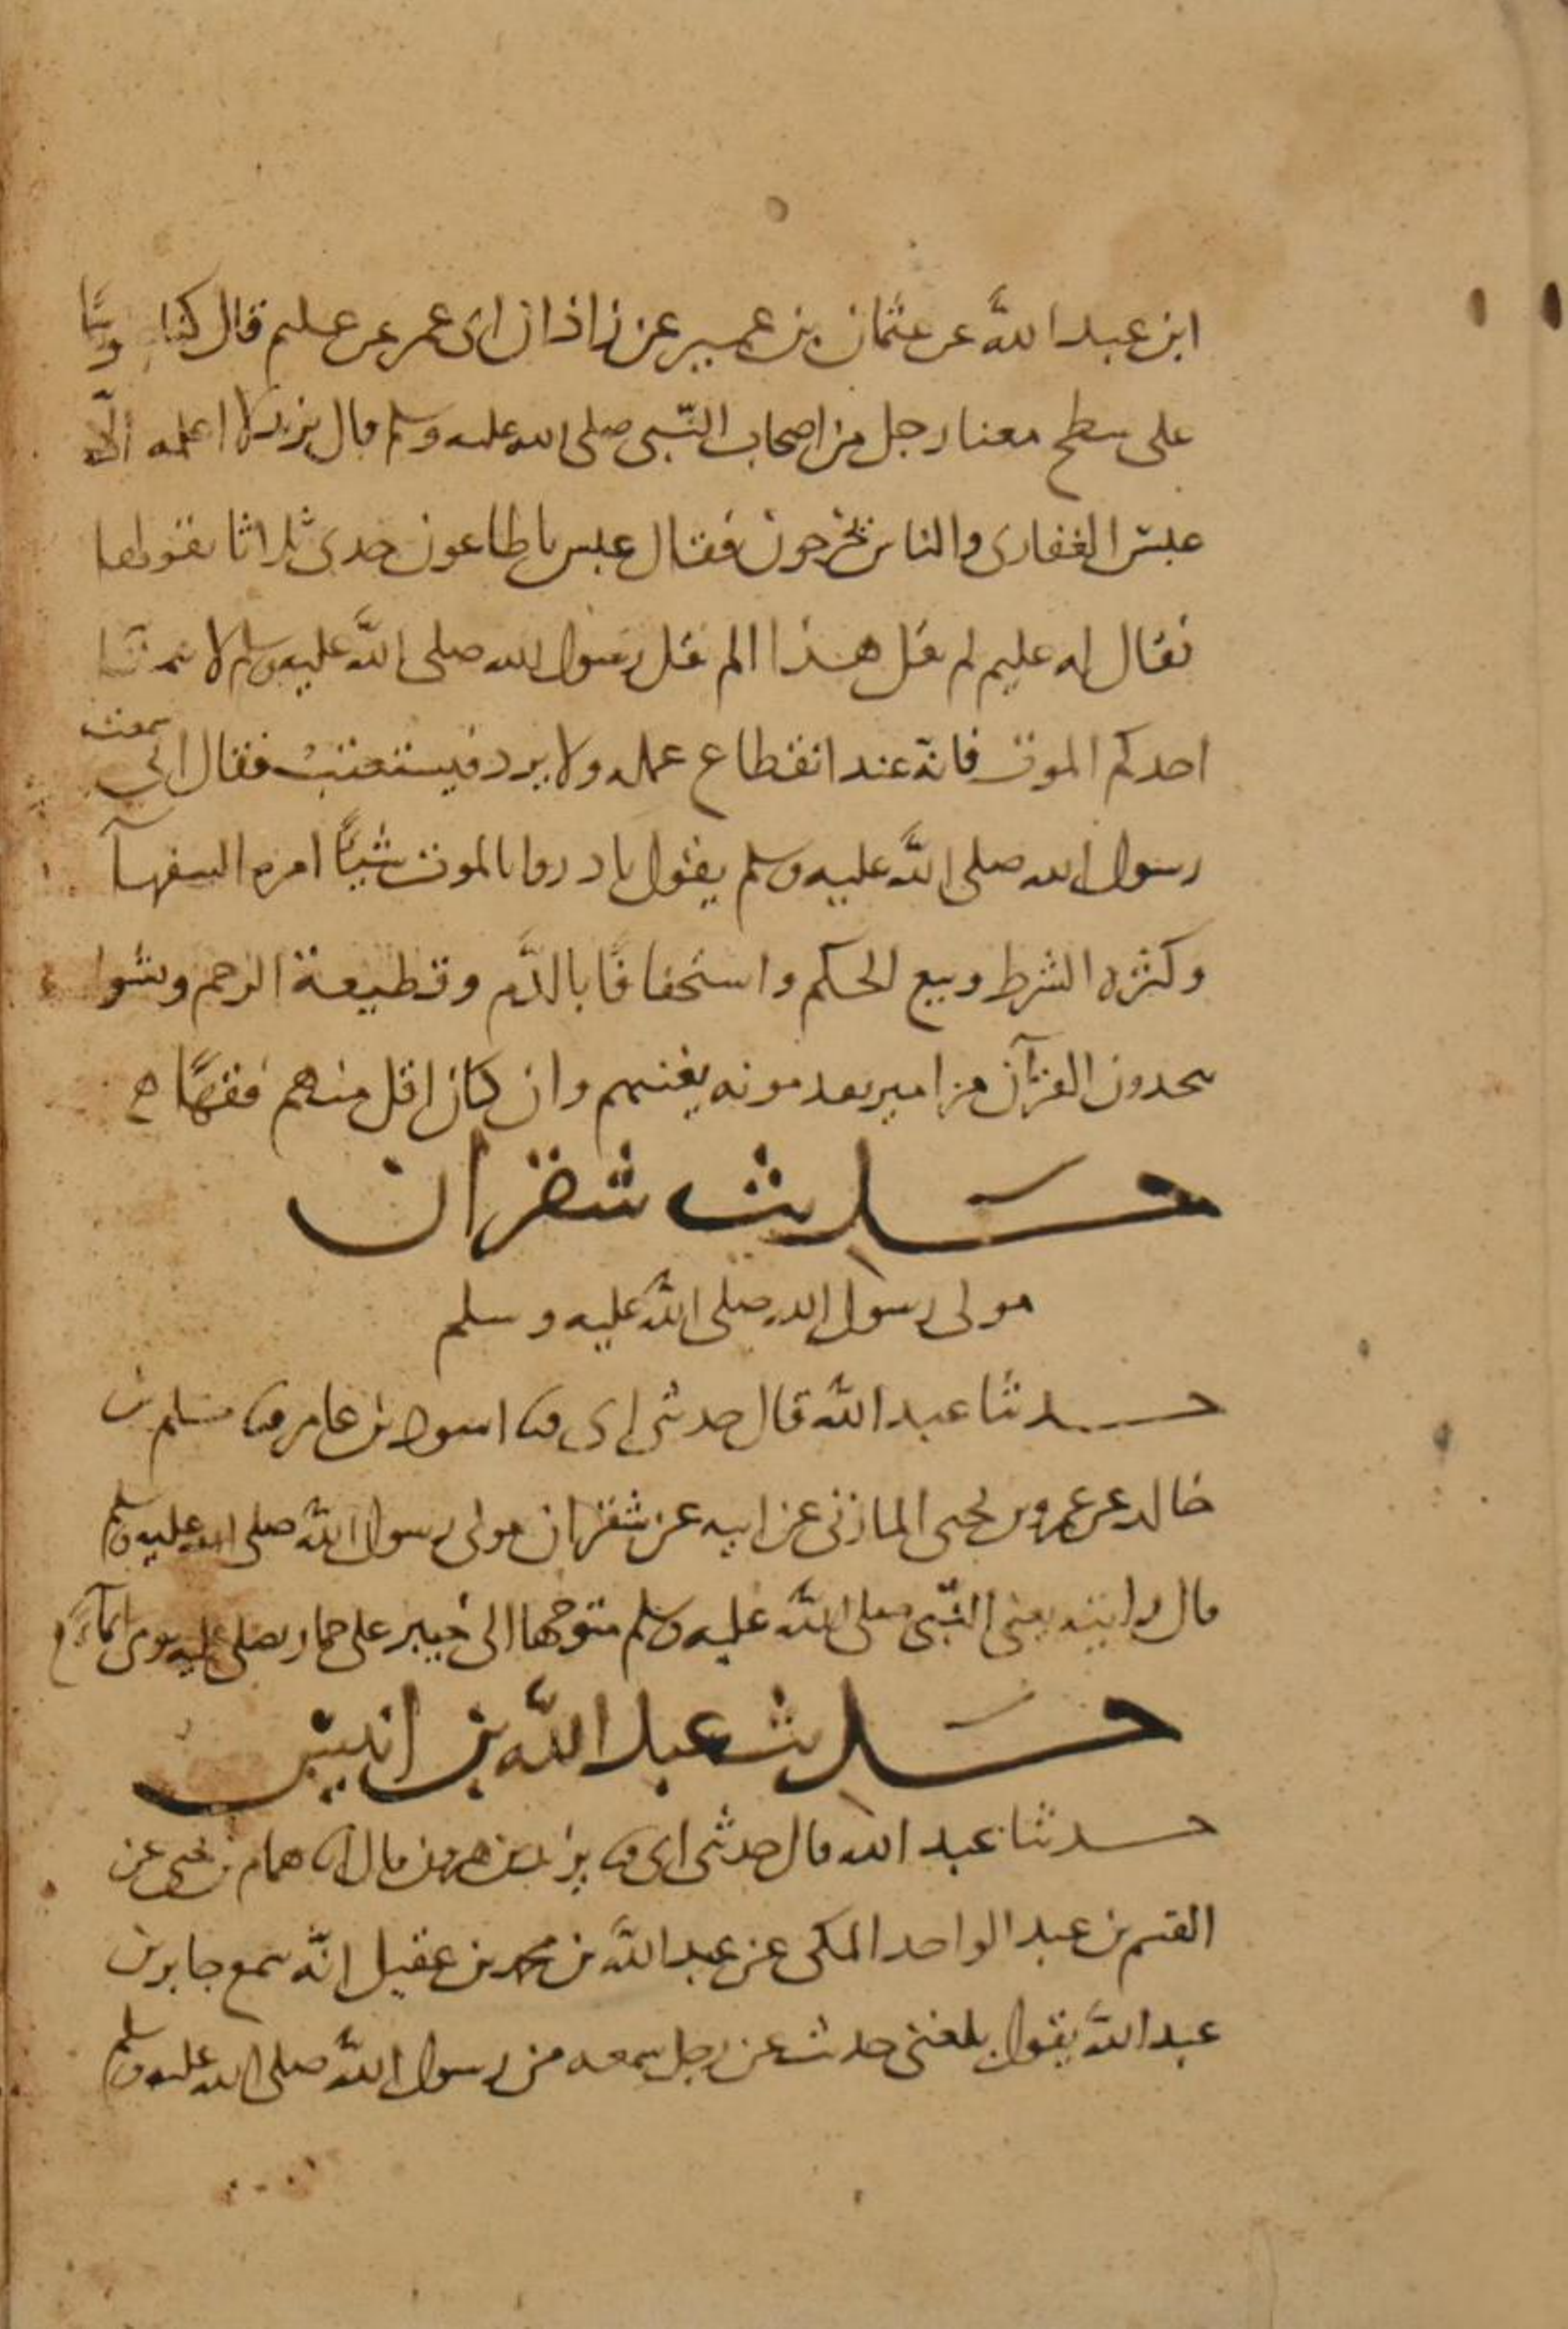 ابن عبد الله عن عثمان بن عمير عن زاذان ابى عمر عن عليم قال كنا
على سطح معنا رجل من اصحاب النبى صلى الله عليه وسلم قال يزيد لا اعلمه الّا
عبس الغفارى والناس يخرجون فقال عبس يا طاعون خذنى ثلاثا يقولها
فقال له عليم لم تقل هذا الم يقل رسول الله صلى الله عليه وسلم لا يتمنا
احدكم الموت فانه عند انقطاع عمله ولا يرد فيستعتب فقال انى سمعت
رسول الله صلى الله عليه وسلم يقول بادروا بالموت ستًّا امره السفهآ
وكثره الشرط وبيع الحكم واستخفافًا بالدّم وقطيعة الرحم ونشوا
يتخذون القرآن مزامير يقدمونه يغنيهم وان كان اقل منهم فقهًا
حديث شقران
مولى رسول الله صلى الله عليه وسلم
حدثنا عبد الله قال حدثنى ابى ثنا اسود بن عامر ثنا مسلم بن
خالد عن عمرو بن يحيى المازنى عن ابيه عن شقران مولى رسول الله صلى الله عليه وسلم
قال رايته يعنى النّبى صلى الله عليه وسلم متوجها الى خيبر على حمار يصلى عليه يومى ايمآء
حديث عبد الله بن انيس
حدثنا عبد الله قال حدثنى ابى ثنا يزيد بن هرون قال انا همام بن يحيى عن
القسم بن عبد الواحد المكى عن عبد الله بن محمد بن عقيل انّه سمع جابر بن
عبد الله يقول بلغنى حديث عن رجل سمعه من رسول الله صلى الله عليه وسلم